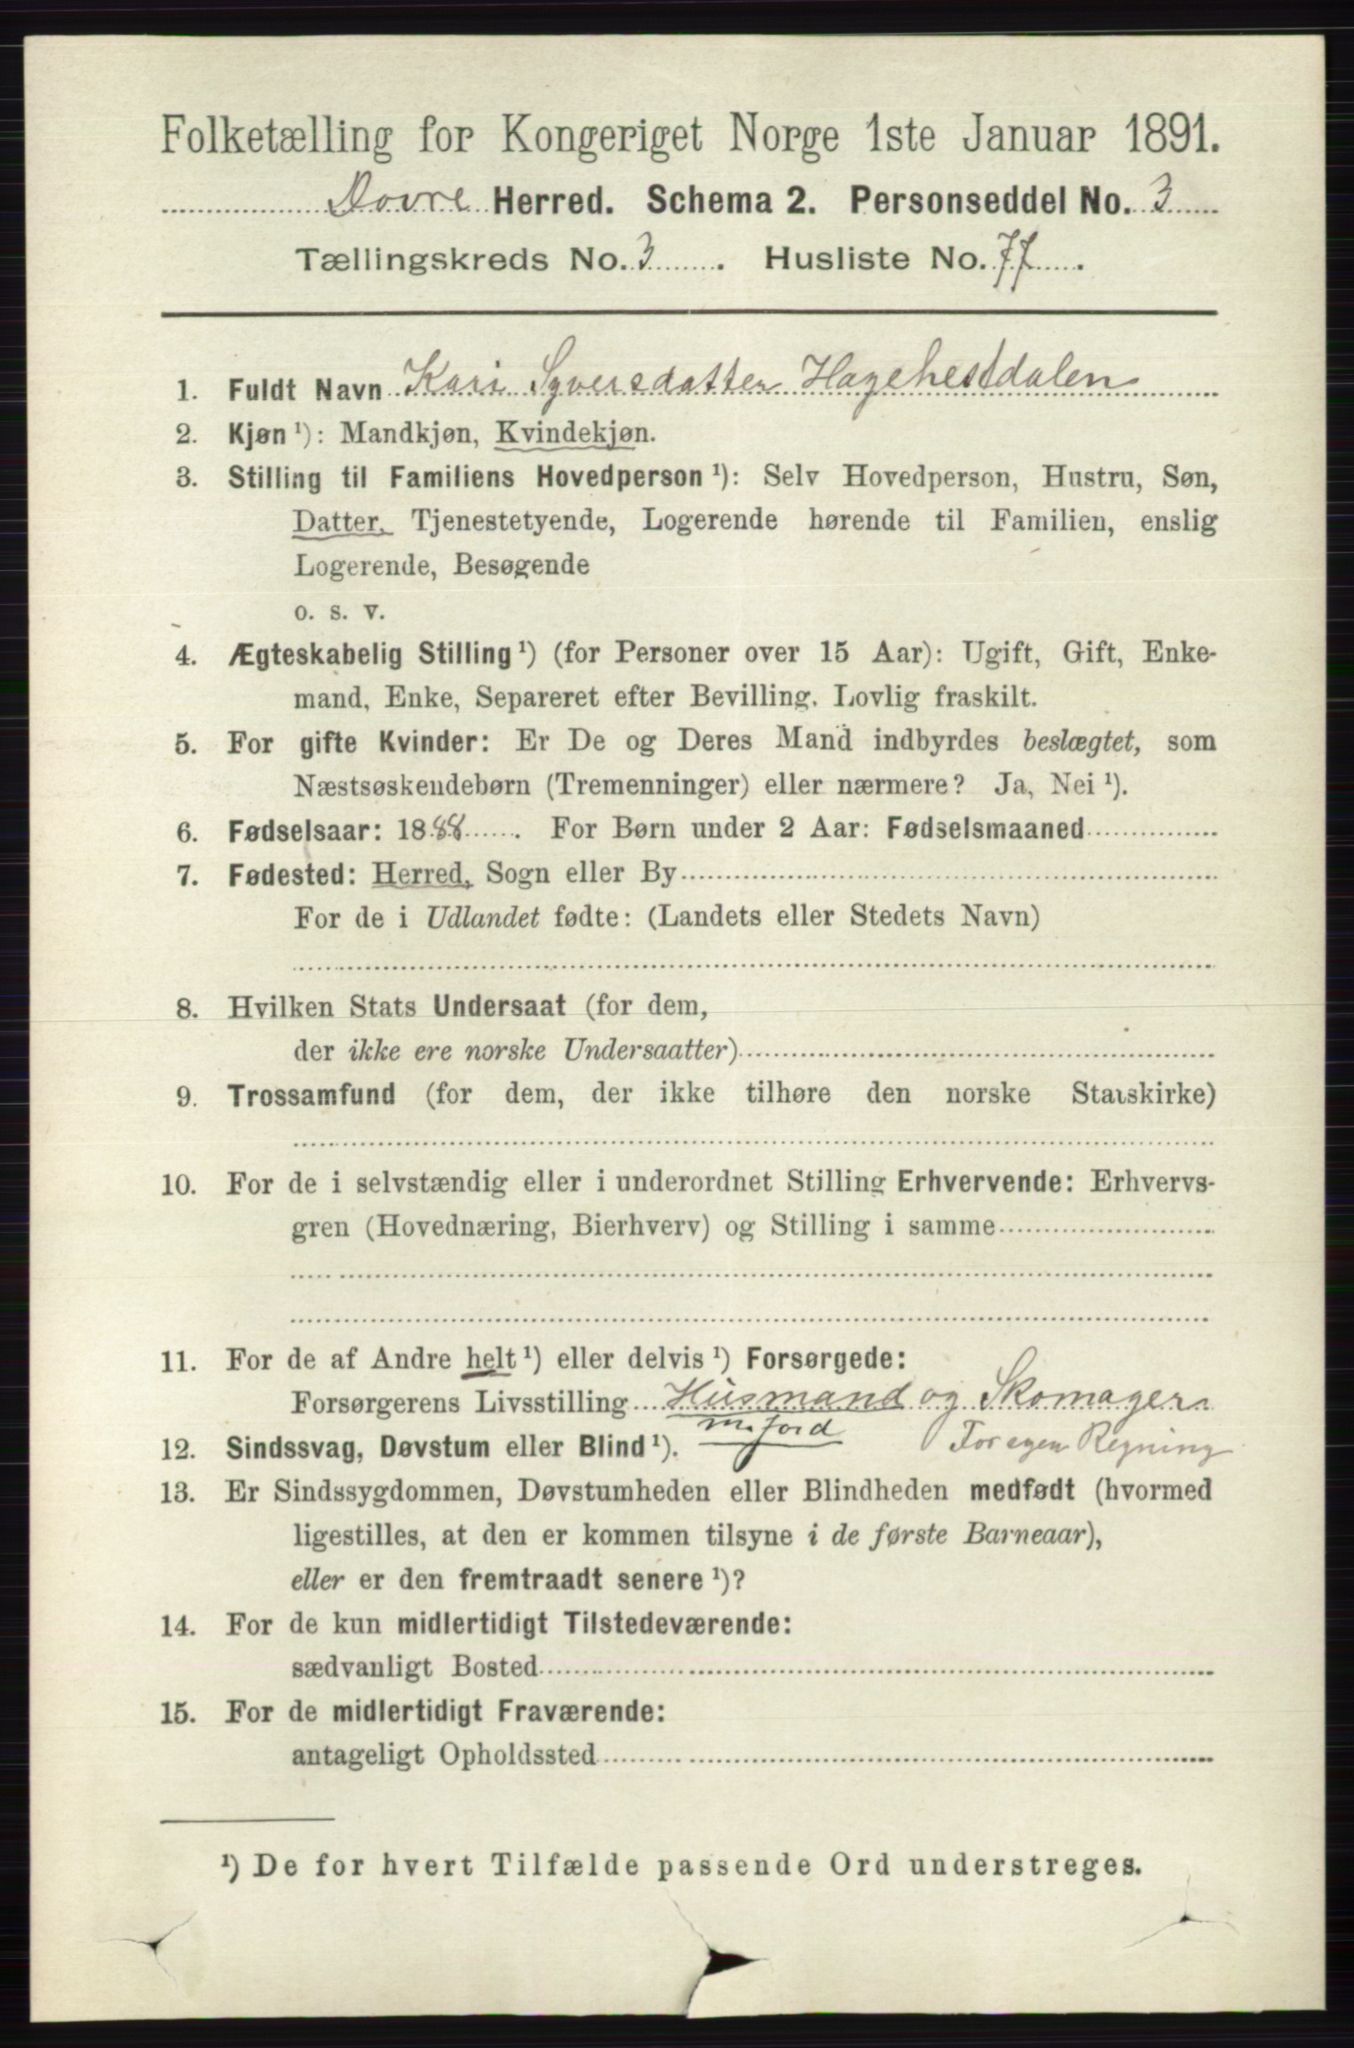 Folketælling for Kongeriget Norge 1ste Januar 1891.
Dovre Herred. Schema 2. Personseddel No. 3
Tællingskreds No. 3. Husliste No. 77.
1. Fuldt Navn Kari Syversdatter Hagehestdalen
2. Kjøn ¹): Mandkjøn, Kvindekjøn.
3. Stilling til Familiens Hovedperson ¹): Selv Hovedperson, Hustru, Søn,
Datter, Tjenestetyende, Logerende hørende til Familien, enslig
Logerende, Besøgende
o. s. v.
4. Ægteskabelig Stilling ¹) (for Personer over 15 Aar): Ugift, Gift, Enke-
mand, Enke, Separeret efter Bevilling. Lovlig fraskilt.
5. For gifte Kvinder: Er De og Deres Mand indbyrdes beslægtet, som
Næstsøskendebørn (Tremenninger) eller nærmere? Ja, Nei ¹).
6. Fødselsaar: 1888. For Børn under 2 Aar: Fødselsmaaned
7. Fødested: Herred, Sogn eller By
For de i Udlandet fødte: (Landets eller Stedets Navn)
8. Hvilken Stats Undersaat (for dem,
der ikke ere norske Undersaatter)
9. Trossamfund (for dem, der ikke tilhøre den norske Statskirke)
10. For de i selvstændig eller i underordnet Stilling Erhvervende: Erhvervs-
gren (Hovednæring, Bierhverv) og Stilling i samme
11. For de af Andre helt ¹) eller delvis ¹) Forsørgede:
Forsørgerens Livsstilling Husmand og Skomager
m. jord For egen Regning
12. Sindssvag, Døvstum eller Blind ¹).
13. Er Sindssygdommen, Døvstumheden eller Blindheden medfødt (hvormed
ligestilles, at den er kommen tilsyne i de første Barneaar),
eller er den fremtraadt senere ¹)?
14. For de kun midlertidigt Tilstedeværende:
sædvanligt Bosted
15. For de midlertidigt Fraværende:
antageligt Opholdssted
¹) De for hvert Tilfælde passende Ord understreges.